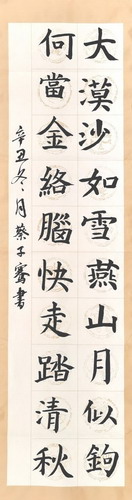 大漠沙如雪燕山月似鉤
何當金絡腦快走踏清秋
辛丑冬月蔡子騫書